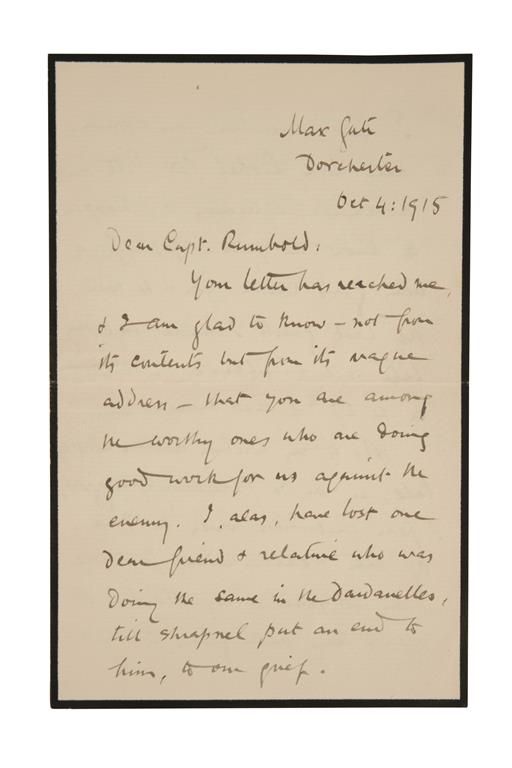 Max Gate
Dorchester
Oct 4: 1915
Dear Capt. Rumbold:
Your letter has reached me,
& I am glad to know – not from
its contents but from its vague
address – that you are among
the worthy ones who are doing
good work for us against the
enemy. I, alas, have lost one
dear friend & relative who was
doing the same in the Dardanelles,
till shrapnel put an end to
him, to our grief.